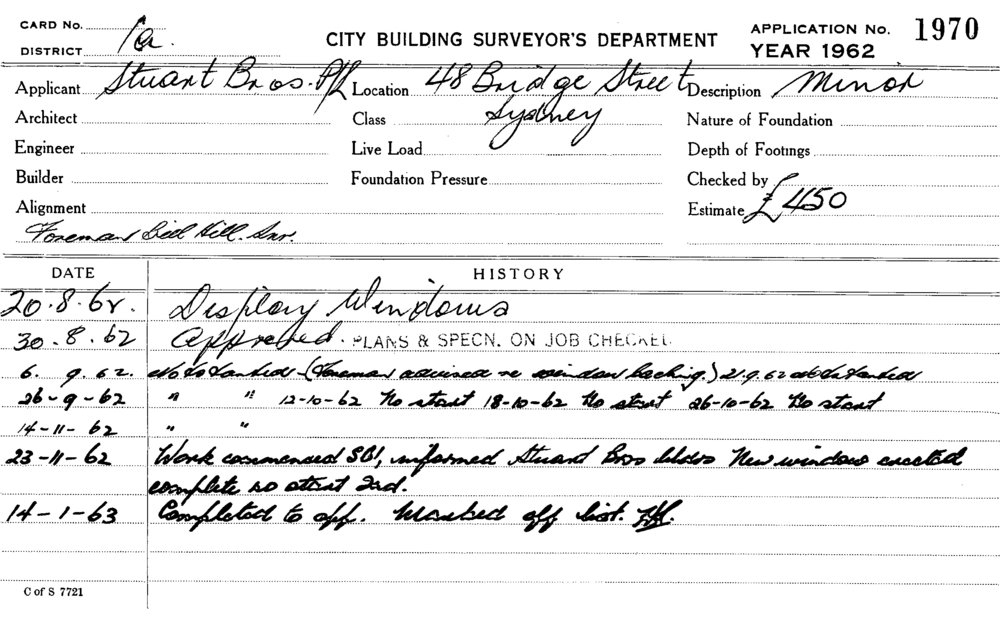 CARD No.
DISTRICT 1a.
CITY BUILDING SURVEYOR'S DEPARTMENT
APPLICATION No. 1970
YEAR 1962
Applicant Stuart Bros. P/L Location 48 Bridge Street Description Minor
Architect Class Sydney Nature of Foundation
Engineer Live Load Depth of Footings
Builder Foundation Pressure Checked by
Alignment Estimate £450
Foreman Bill Hill.
DATE HISTORY
20.8.62. Display Windows
30.8.62 Approved. PLANS & SPECN. ON JOB CHECKED
6. 9.62. Not started (Foreman advised re window backing.) 21.9.62 not started
26-9-62 " " 12-10-62 No start 18-10-62 No start 26-10-62 No start
14-11-62 " "
23-11-62 Work commenced informed Stuart Bros bldrs New window erected
complete no start 2nd.
14-1-63 Completed to app. Marked off list.
C of S 7721